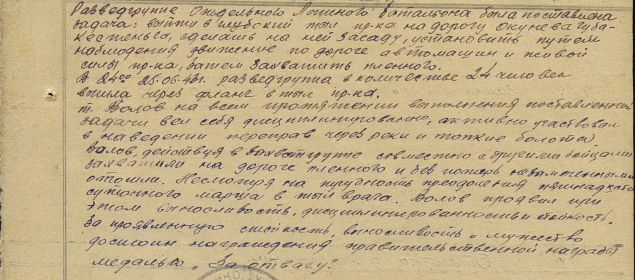 Разведгруппе Отдельного Лыжного Батальона была поставлена
задача: выйти в глубокий тыл пр-ка на дороги Окунева губа-
Кестеньга, сделать на ней засаду, установить путем
наблюдения движение по дороге автомашин и живой
силы пр-ка, затем захватить пленного.
В 24-00 25.06.43г. разведгруппа в количестве 24 человек
вышла через фланг в тыл пр-ка.
т. Валов на всем протяжении выполнения поставленной
задачи вел себя дисциплинированно, активно участвовал
в наведении переправ через реки и топкие болота.
Валов, действуя в захватгруппе совместно с другими бойцами
захватили на дороге пленного и без потерь с пленным
отошли. Несмотря на трудность преодоления пятнадцати
суточного марша в тыл врага. Валов проявил при
этом выносливость, дисциплинированность и стойкость.
За проявленную стойкость, выносливость и мужество
достоин награждения правительственной награды
медалью „За отвагу".